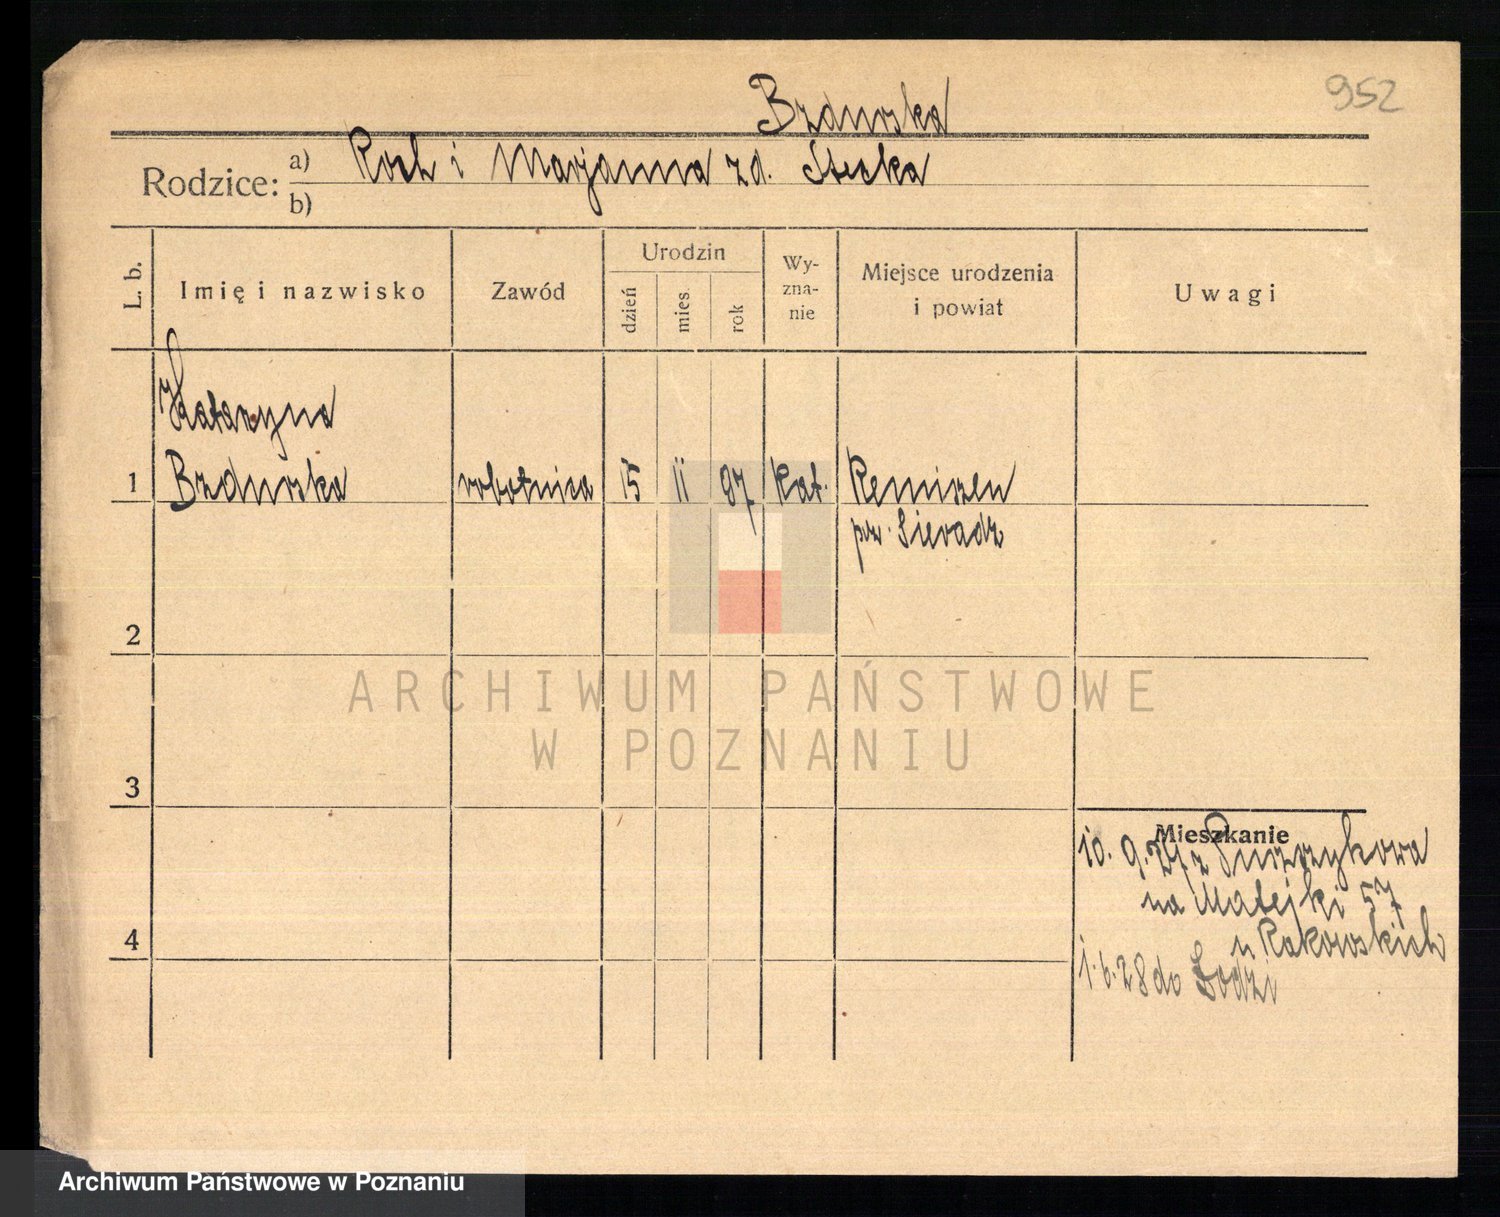 952
Bzdurska
Rodzice: a) Roch i Marjanna z d. Stecka
b)
L. b.
Imię i nazwisko
Zawód
Urodzin
dzień
mies.
rok
Wy-
zna-
nie
Miejsce urodzenia
i powiat
Uwagi
Katarzyna
1 Bzdurska robotnica 15 11 97 Kat. Remiszew
pow. Sieradz
2
3
4
Mieszkanie
10. 9. 27 z Puszczykowa
na Matejki 57
u Rakowskich
1. 6. 28 do Łodzi
ARCHIWUM PAŃSTWOWE
W POZNANIU
Archiwum Państwowe w Poznaniu